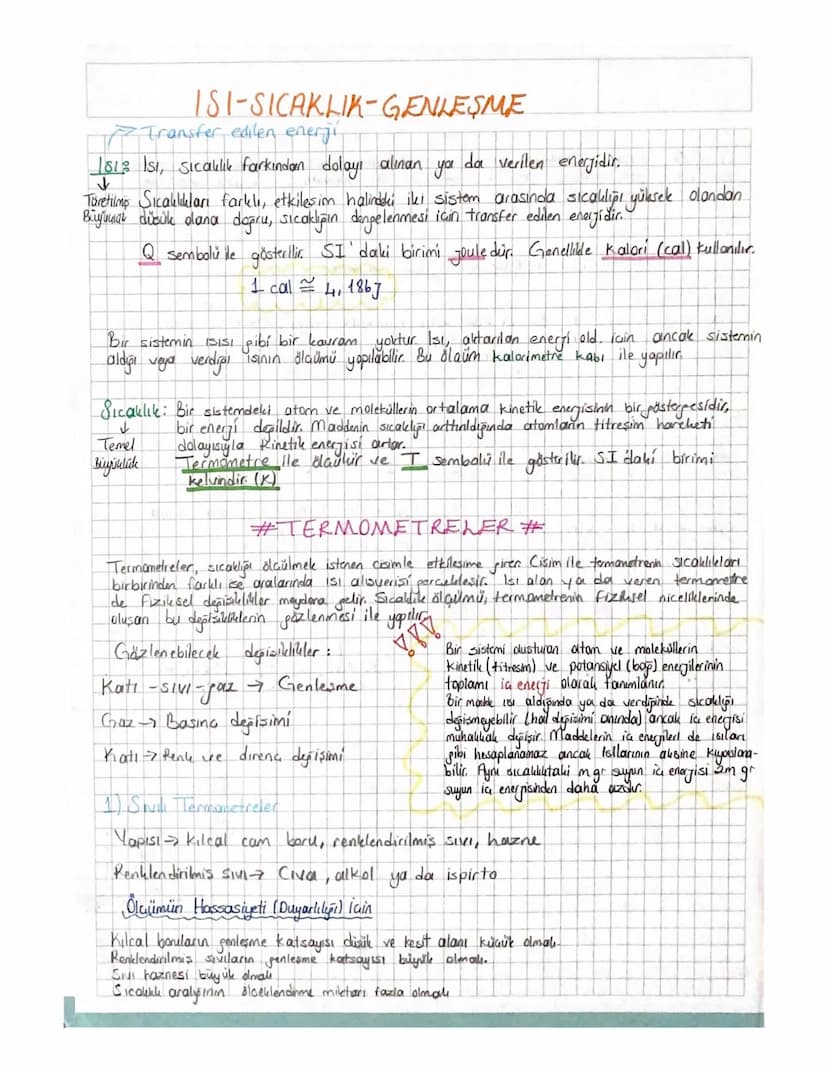 ISI-SICAKLIK-GENLEŞME
Transfer edilen enerji
Isı: Isı, sıcaklık farkından dolayı alınan ya da verilen enerjidir.
Türetilmiş Büyüklük
Sıcaklıkları farklı, etkileşim halindeki iki sistem arasında sıcaklığı yüksek olandan
düşük olana doğru, sıcaklığın dengelenmesi için transfer edilen enerjidir.
Q sembolü ile gösterilir. SI'daki birimi joule dür. Genellikle kalori (cal) kullanılır.
1 cal ≅ 4,186J
Bir sistemin ısısı gibi bir kavram yoktur. Isı, aktarılan enerji old. için ancak sistemin
aldığı veya verdiği ısının ölçümü yapılabilir. Bu ölçüm kalorimetre kabı ile yapılır.
Sıcaklık: Bir sistemdeki atom ve moleküllerin ortalama kinetik enerjisinin bir göstergesidir,
Temel büyüklük
bir enerji değildir. Maddenin sıcaklığı arttırıldığında atomların titreşim hareketi
dolayısıyla kinetik enerjisi artar.
Termometre ile ölçülür ve T sembolü ile gösterilir. SI daki birimi
kelvindir. (K)
#TERMOMETRELER#
Termometreler, sıcaklığı ölçülmek istenen cisimle etkileşime girer. Cisim ile termometrenin sıcaklıkları
birbirinden farklı ise aralarında ısı alışverişi gerçekleşir. Isı alan ya da veren termometre
de fiziksel değişiklikler meydana gelir. Sıcaklık ölçümü, termometrenin fiziksel niceliklerinde
oluşan bu değişikliklerin gözlenmesi ile yapılır.
!!!
Gözlenebilecek değişiklikler:
Katı-sıvı-gaz → Genleşme
Gaz → Basınç değişimi
Katı → Renk ve direnç değişimi
Bir sistemi oluşturan atom ve moleküllerin
kinetik (titreşim) ve potansiyel (bağ) enerjilerinin
toplamı iç enerji olarak tanımlanır.
Bir madde ısı aldığında ya da verdiğinde sıcaklığı
değişmeyebilir (hal değişimi anında) ancak iç enerjisi
muhakkak değişir. Maddelerin iç enerjileri de ısıları
gibi hesaplanamaz ancak ısılarının aksine kıyaslana-
bilir. Aynı sıcaklıktaki m gr suyun iç enerjisi 2m gr
suyun iç enerjisinden daha azdır.
1) Sıvılı Termometreler
Yapısı → Kılcal cam boru, renklendirilmiş sıvı, hazne
Renklendirilmiş sıvı → Civa, alkol ya da ispirto
Ölçümün Hassasiyeti (Duyarlılığı) için
Kılcal boruların genleşme katsayısı düşük ve kesit alanı küçük olmalı.
Renklendirilmiş sıvıların genleşme katsayısı büyük olmalı.
Sıvı haznesi büyük olmalı
Sıcaklık aralığının ölçeklendirme miktarı fazla olmalı